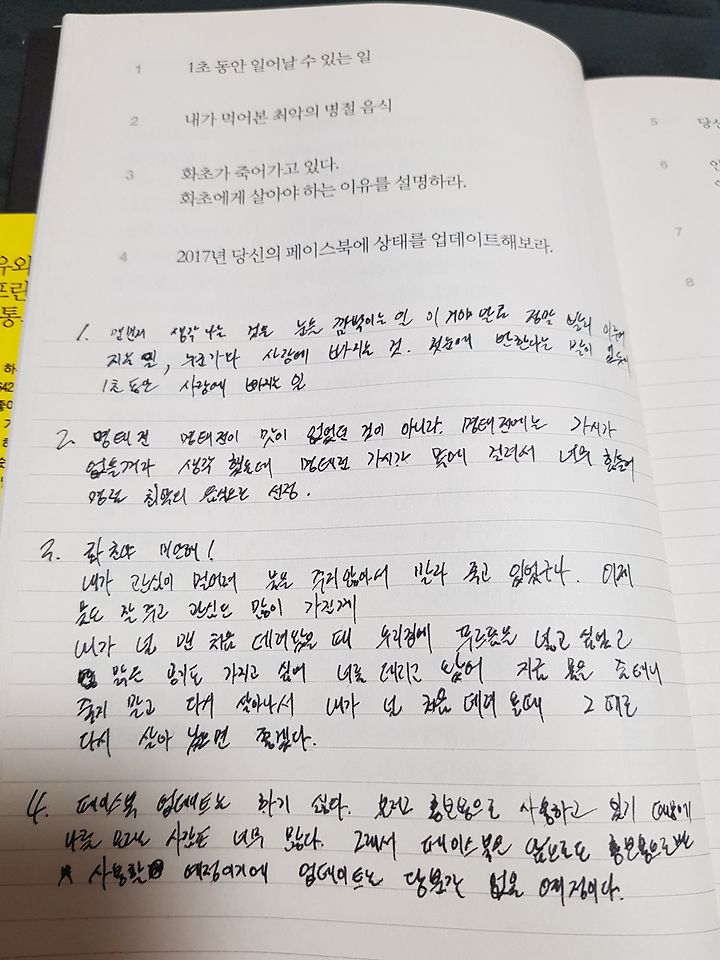 1 1초 동안 일어날 수 있는 일
2 내가 먹어본 최악의 명절 음식
3 화초가 죽어가고 있다.
화초에게 살아야 하는 이유를 설명하라.
4 2017년 당신의 페이스북에 상태를 업데이트해보라.
1. 먼저 생각 나는 것은 눈을 깜박이는 일 이거야 말로 정말 빨리
지는 일, 누군가다 사랑에 빠지는 것. 첫눈에 반한다는 말이 있듯이
1초 동안 사랑에 빠지는 일
2. 명태전 명태전이 맛이 없었던 것이 아니라. 명태전에는 가시가
없을꺼라 생각 했는데 명태전 가시가 목에 걸려서 너무 힘들어
최악의 음식으로 선정.
3. 화초야 미안해!
내가 관심이 멀어져 물을 주지않아서 말라 죽고 있었구나. 이제
물도 잘 주고 관심도 많이 가질게
내가 널 맨 처음 데려왔을 때 우리집에 푸르름을 넣고 싶었고
맑은 공기도 가지고 싶어 너를 데리고 왔어 지금 물을 줄테니
죽지 말고 다시 살아나서 내가 널 처음 데려 올때 그 때로
다시 살아 났으면 좋겠다.
4. 페이스북 업데이트는 하기 싫다. 오직 홍보용으로 사용하고 있기 때문에
나를 모르는 사람도 너무 많다. 그래서 페이스북은 앞으로도 홍보용으로만
사용할 예정이기에 업데이트는 당분간 없을 예정이다.
5 당신
6
7
8
유와
프린
통